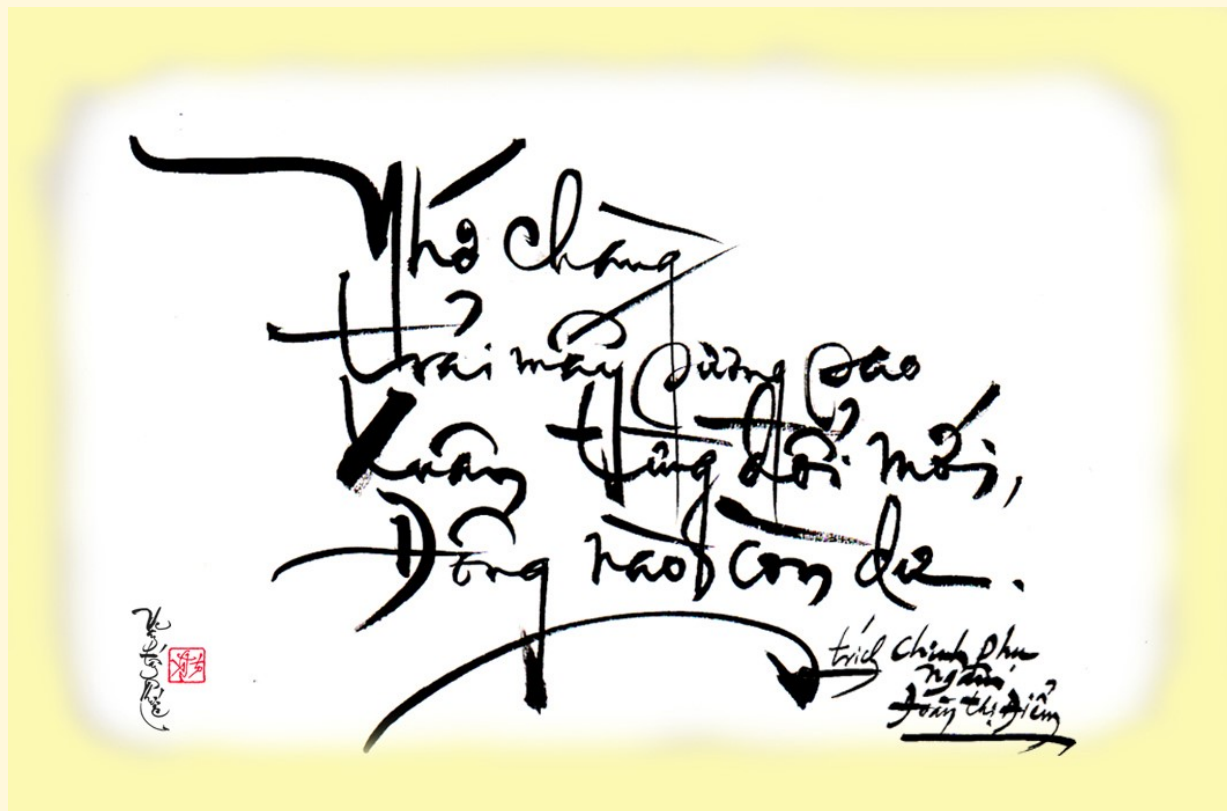 Nhớ chàng
trải mấy sương sao
Xuân từng đổi mới,
Đông nào còn dư.
trích Chinh Phụ
ngâm
Đoàn thị Điểm